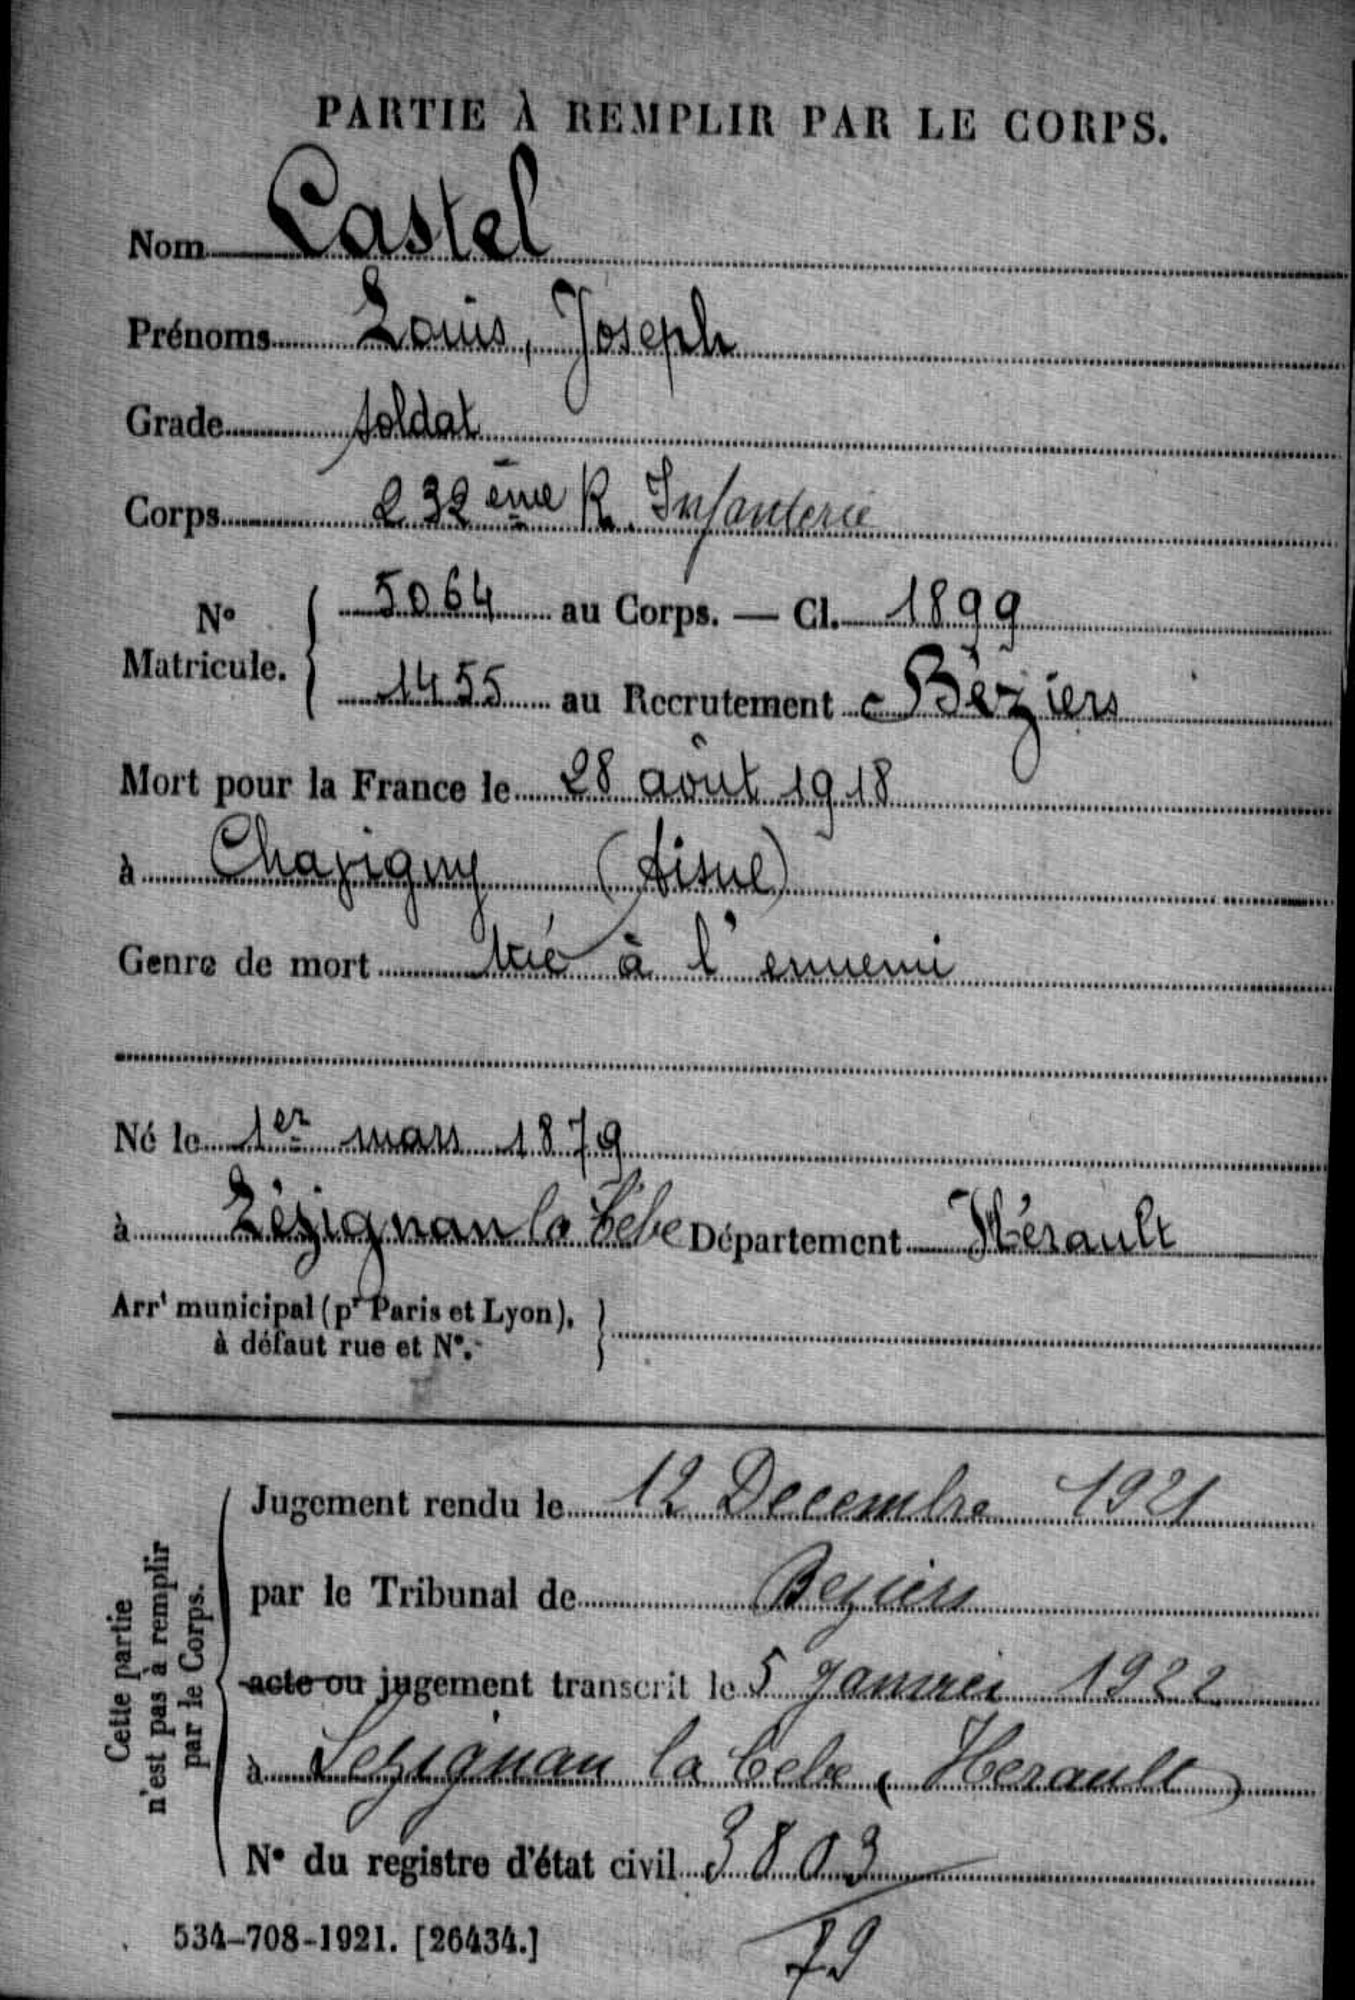 PARTIE À REMPLIR PAR LE CORPS.
Nom Castel
Prénoms Louis, Joseph
Grade soldat
Corps 232ème R. Infanterie
N° Matricule. { 5064 au Corps. — Cl. 1899
1455 au Recrutement Béziers
Mort pour la France le 28 août 1918
à Chavigny (Aisne)
Genre de mort tué à l'ennemi
Né le 1er mars 1879
à Lézignan la Cèbe Département Hérault
Arrt municipal (pr Paris et Lyon), à défaut rue et N°. }
Cette partie n'est pas à remplir par le Corps.
Jugement rendu le 12 Decembre 1921
par le Tribunal de Beziers
acte ou jugement transcrit le 5 Janvier 1922
à Lezignan la Cebe (Herault)
N° du registre d'état civil 3803
79
534-708-1921. [26434.]